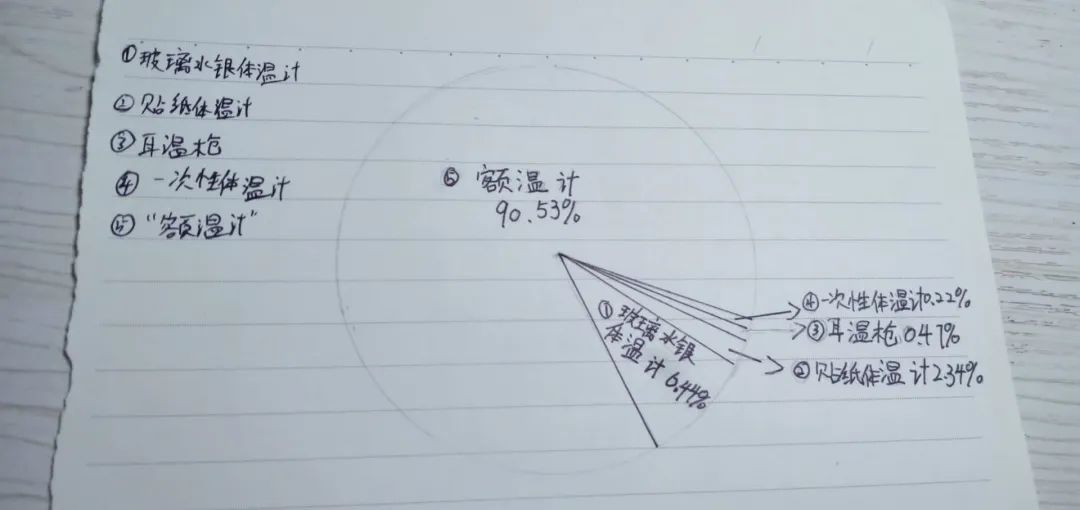 ①玻璃水银体温计
②贴纸体温计
③耳温枪
④一次性体温计
⑤“额温计”
⑤ 额温计
90.53%
①玻璃水银
体温计6.44%
④一次性体温计0.22%
③耳温枪0.47%
②贴纸体温计2.34%